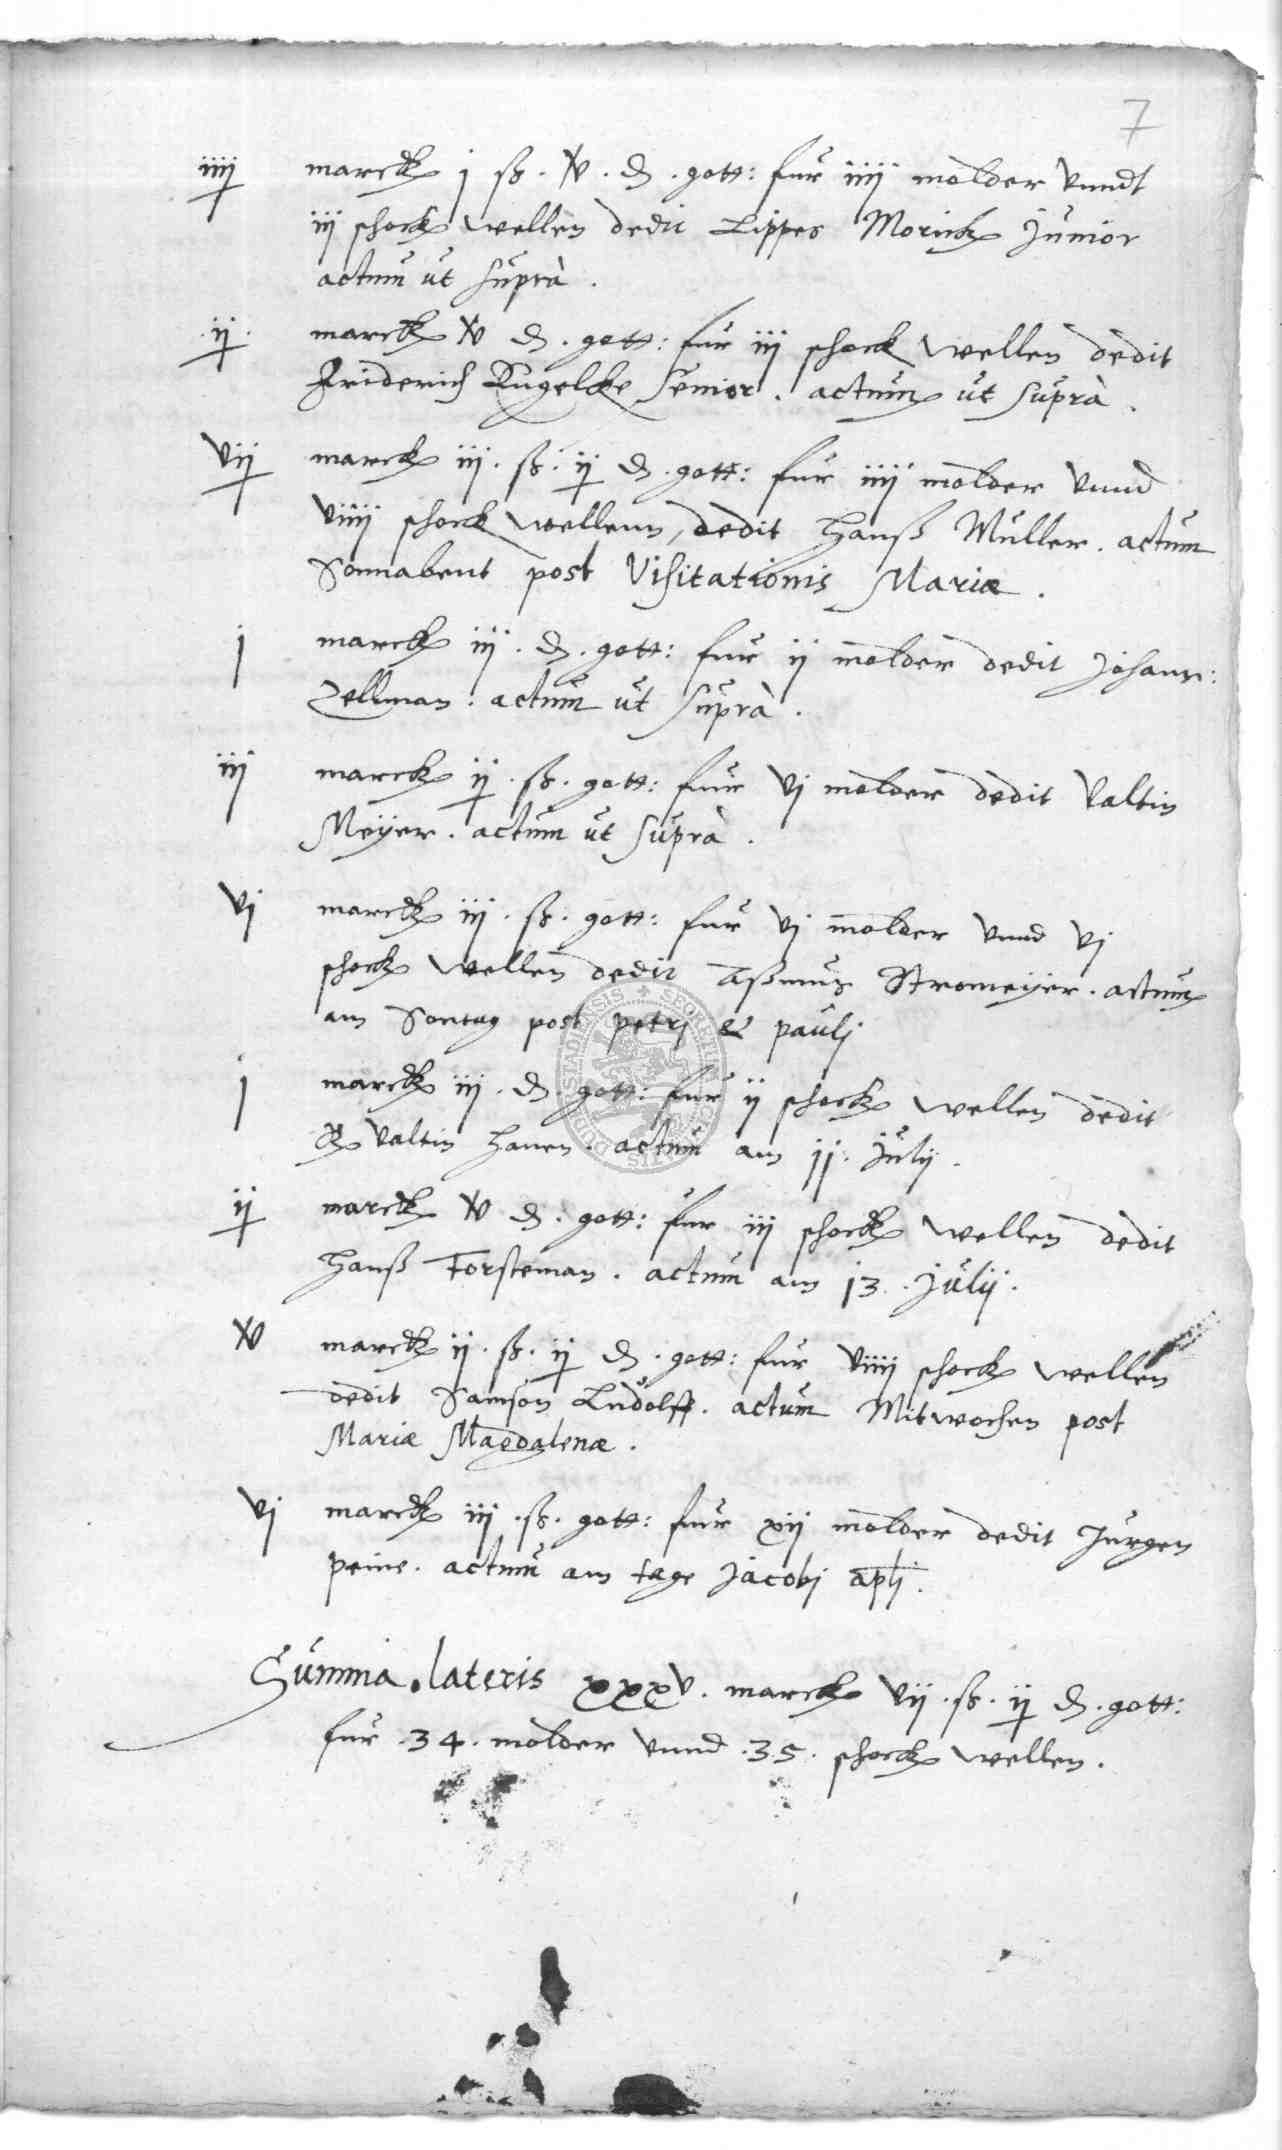 7
iiij marck j ß. iv. d. gott: fur iiij molder vnndt
iij schock wellen dedit Lippes Morick junior
actum ut supra.
ij. marck iv d. gott: fur iij schock wellen dedit
Friderich Kugelcke senior. actum ut supra.
vij marck iij. ß. ij d. gott: fur iiij molder vnnd
viiij schock wellenn, dedit Hanß Muller. actum
Sonnabent post Visitationis Mariæ.
j marck iij. d. gott: fur ij molder dedit Johann:
Zellman. actum ut supra.
iij marck ij. ß. gott: fur vj molder dedit Valtin
Meÿer. actum ut supra.
vj marck iij. ß. gott: fur vj molder vnnd vj
schock wellen dedit Aßmus Stromeÿer. actum
am Sontag post petrj & paulj
j marck iij. d. gott: fur ij schock wellen dedit
Valtin Hanen. actum am jj. julij.
ij marck iv d. gott: fur iij schock wellen dedit
Hanß Forsteman. actum am j3. julij.
iv marck ij. ß. ij d. gott: fur viiij schock wellen
dedit Samson Ludolff. actum Mitwochen post
Mariæ Magdalenæ.
vj marck iij. ß. gott: fur xij molder dedit Jurgen
peine. actum am tage Jacobj aplj.
Summa. lateris xxxv. marck vij. ß. ij d. gott:
fur .34. molder vnnd .35. schock wellen.